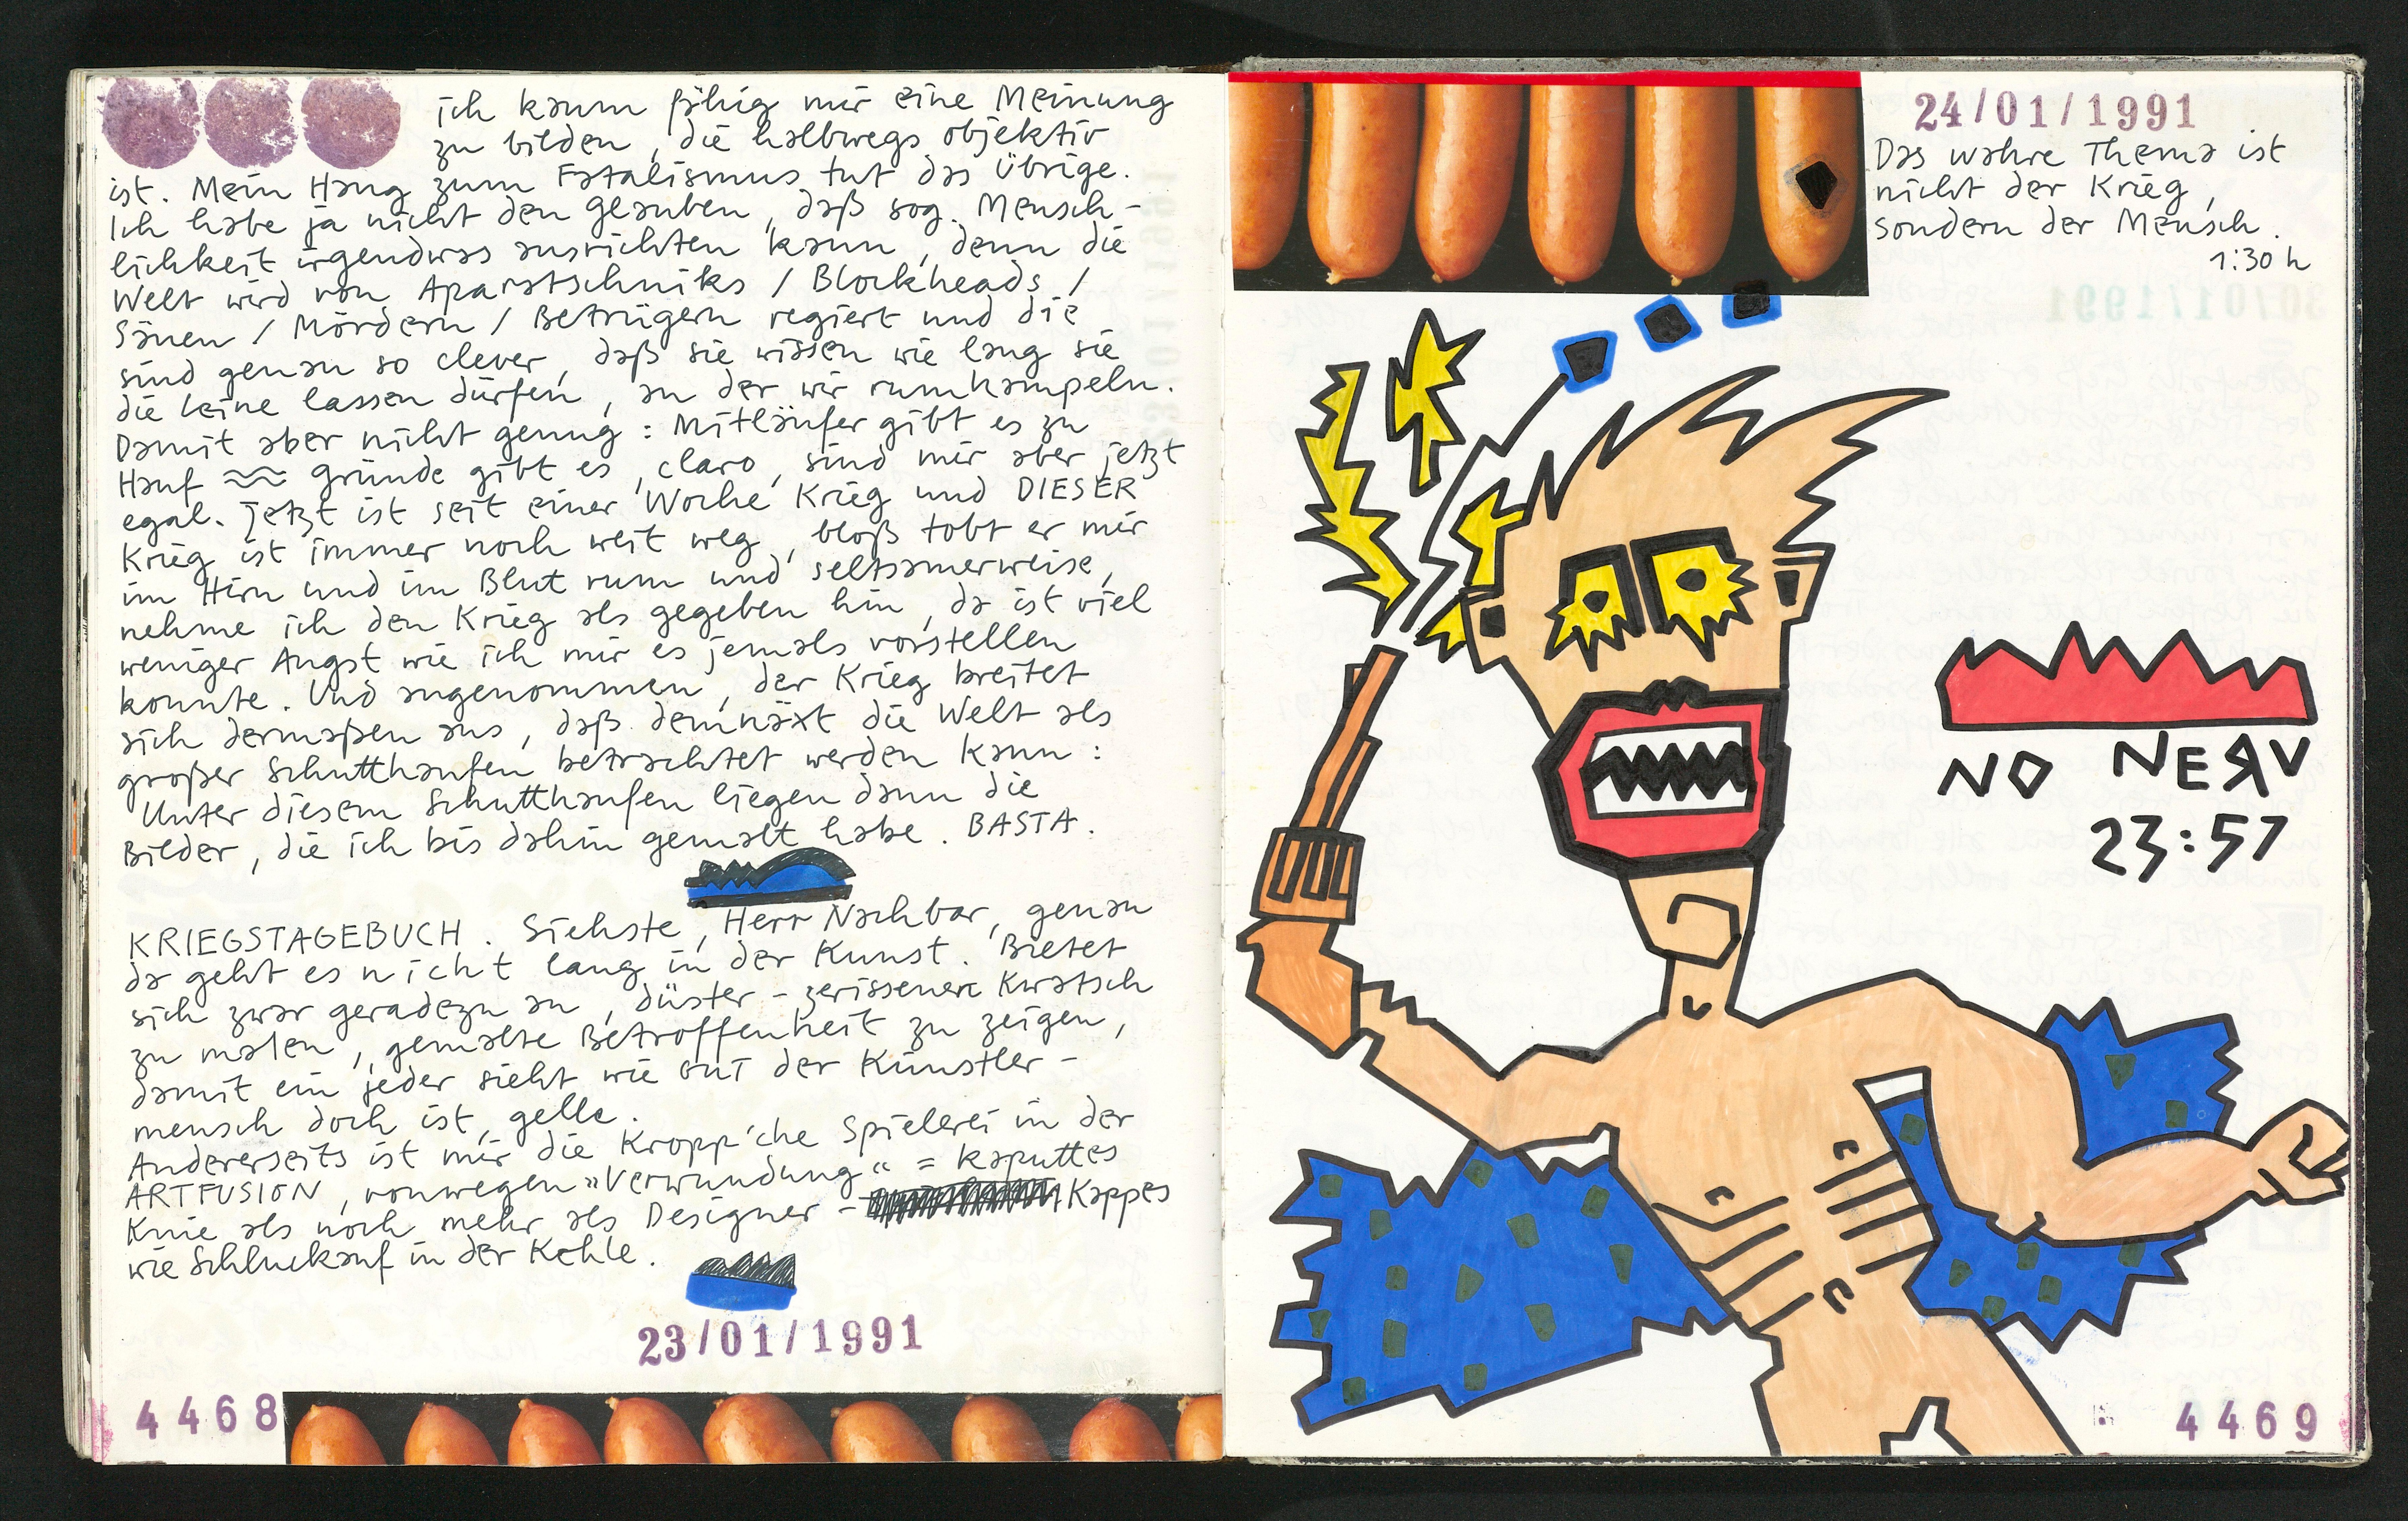 ich kaum fähig mir eine Meinung
zu bilden, die halbwegs objektiv
ist. Mein Hang zum Fatalismus tut das Übrige.
Ich habe ja nicht den Glauben, daß sog. Mensch-
lichkeit irgendwas ausrichten kann, denn die
Welt wird von Aparatschniks / Blockheads /
Säuen / Mördern / Betrügern regiert und die
sind genau so clever, daß sie wissen wie lang sie
die Leine lassen dürfen, an der wir rumhampeln.
Damit aber nicht genug: Mitläufer gibt es zu
Hauf ≈ Gründe gibt es, claro, sind mir aber jetzt
egal. Jetzt ist seit einer Woche Krieg und DIESER
Krieg ist immer noch weit weg, bloß tobt er mir
im Hirn und im Blut rum und seltsamerweise,
nehme ich den Krieg als gegeben hin, da ist viel
weniger Angst wie ich mir es jemals vorstellen
konnte. Und angenommen, der Krieg breitet
sich dermaßen aus, daß demnäxt die Welt als
großer Schutthaufen betrachtet werden kann:
Unter diesem Schutthaufen liegen dann die
Bilder, die ich bis dahin gemalt habe. BASTA.
KRIEGSTAGEBUCH. Siehste, Herr Nachbar, genau
da geht es nicht lang in der Kunst. Bietet
sich zwar geradezu an, düster-zerissenen Kwatsch
zu malen, gemalte Betroffenheit zu zeigen,
damit ein jeder sieht wie GUT der Künstler-
mensch doch ist, gelle.
Andererseits ist mir die Kropp'che Spielerei in der
ARTFUSION, vonwegen »Verwundung« = kaputtes
Knie als noch mehr als Designer - Kappes
wie Schluckauf in der Kehle.
23/01/1991
4468
24/01/1991
Das wahre Thema ist
nicht der Krieg,
sondern der Mensch.
1:30 h
NO NERV
23:57
4469